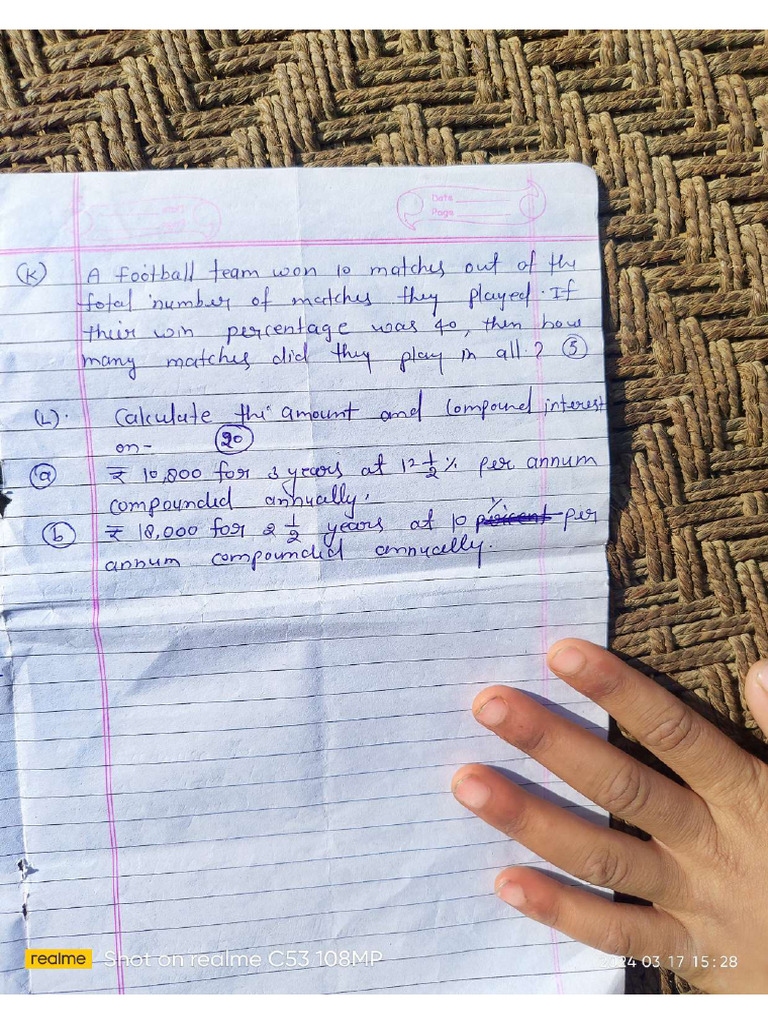 Date
Page
(K) A football team won 10 matches out of the
total number of matches they played. If
their win percentage was 40, then how
many matches did they play in all? (5)
(L). Calculate the amount and compound interest
on- (20)
(a) ₹ 10,800 for 3 years at 12 1/2 % per annum
compounded annually.
(b) ₹ 18,000 for 2 1/2 years at 10 % per
annum compounded annually.
realme Shot on realme C53 108MP
2024 03 17 15:28